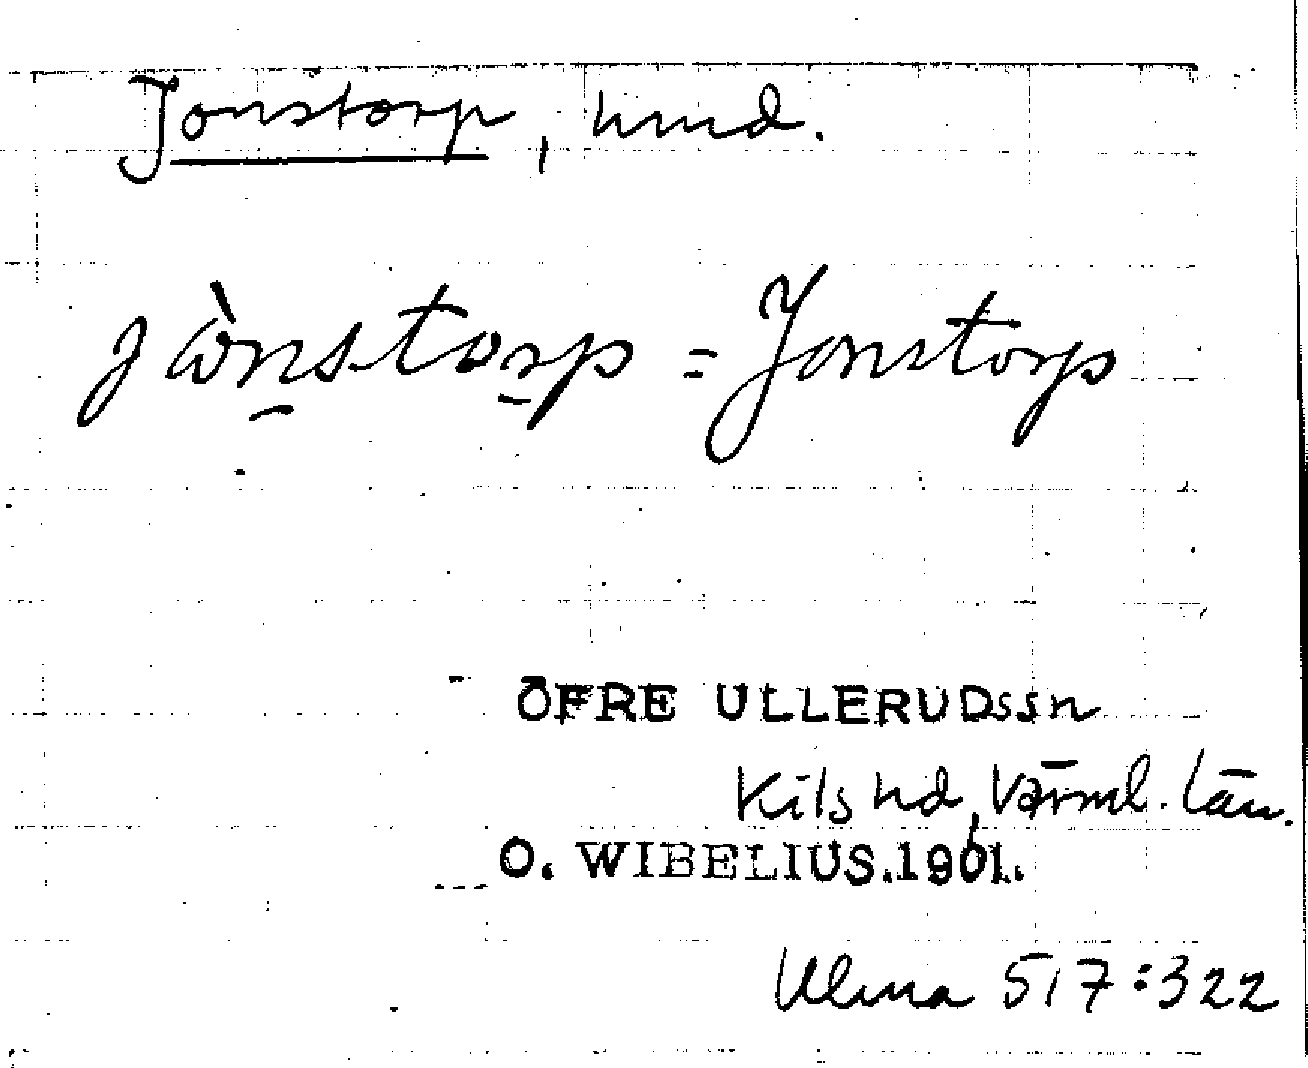 Jonstorp, hmd.
jònstorp = Jonstorp
ÖFRE ULLERUDssn
Kils hd, Värml. län.
O. WIBELIUS.1901.
Ulma 517:322